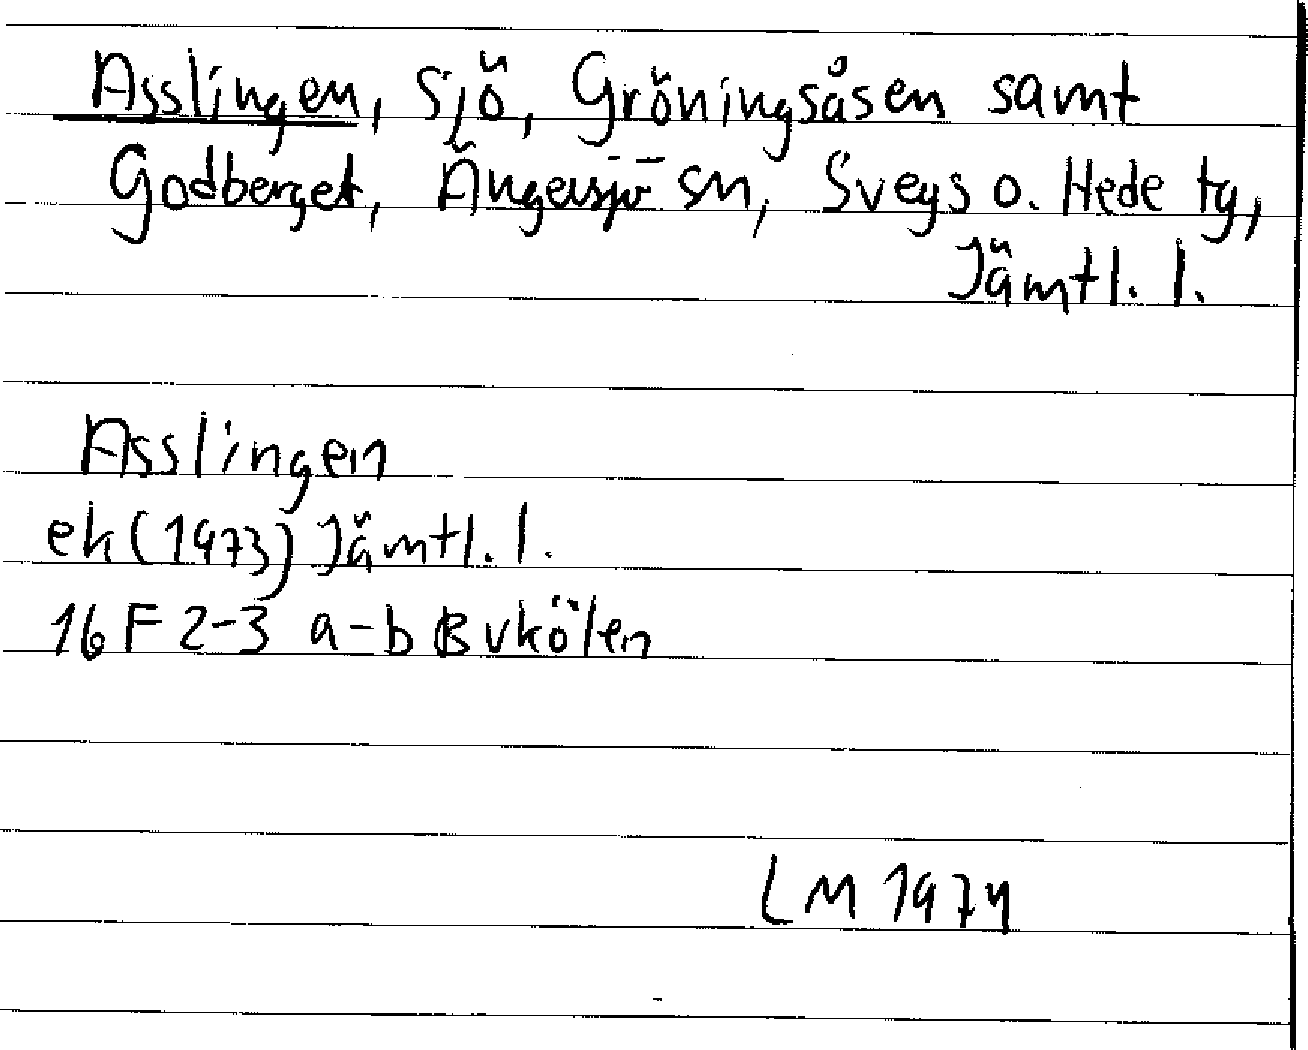 Asslingen, sjö, Gröningsåsen samt
Godberget, Ängersjö sn, Svegs o. Hede tg,
Jämtl. l.
Asslingen
ek (1973) Jämtl. l.
16 F 2-3 a-b Bvkölen
LM 1974